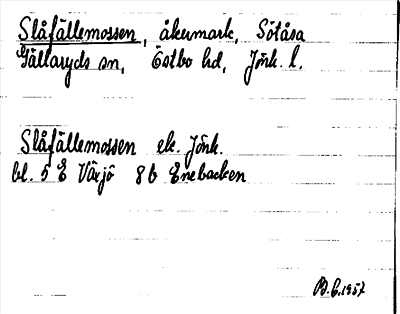 Slåfällemossen, åkermark, Sötåsa
Gällaryds sn, Östbo hd, Jönk. l.
Slåfällemossen ek. Jönk.
bl. 5 E Växjö 8 b Enebacken
B.G. 1957